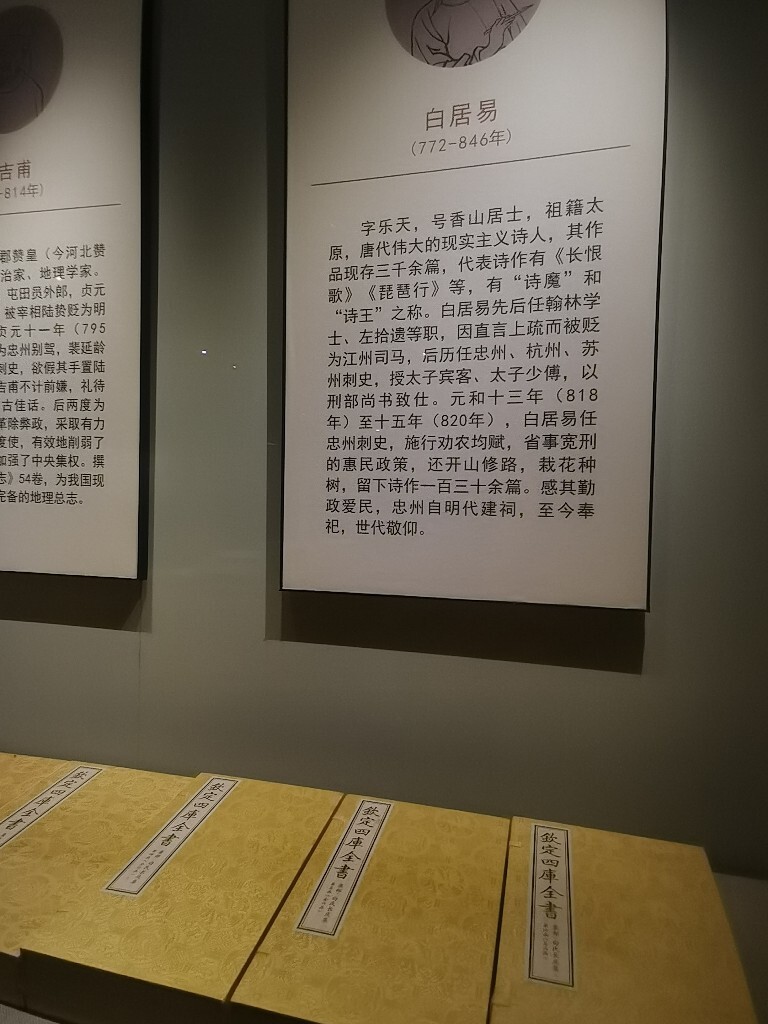 吉甫
-814年)
郡赞皇（今河北赞
治家、地理学家。
屯田员外郎，贞元
被宰相陆贽贬为明
贞元十一年（795
为忠州别驾，裴延龄
刺史，欲假其手置陆
吉甫不计前嫌，礼待
古佳话。后两度为
革除弊政，采取有力
度使，有效地削弱了
加强了中央集权。撰
志》54卷，为我国现
完备的地理总志。
白居易
(772-846年)
字乐天，号香山居士，祖籍太
原，唐代伟大的现实主义诗人，其作
品现存三千余篇，代表诗作有《长恨
歌》《琵琶行》等，有“诗魔”和
“诗王”之称。白居易先后任翰林学
士、左拾遗等职，因直言上疏而被贬
为江州司马，后历任忠州、杭州、苏
州刺史，授太子宾客、太子少傅，以
刑部尚书致仕。元和十三年（818
年）至十五年（820年），白居易任
忠州刺史，施行劝农均赋，省事宽刑
的惠民政策，还开山修路，栽花种
树，留下诗作一百三十余篇。感其勤
政爱民，忠州自明代建祠，至今奉
祀，世代敬仰。
钦定四庫全書
钦定四庫全書
钦定四庫全書
钦定四庫全書